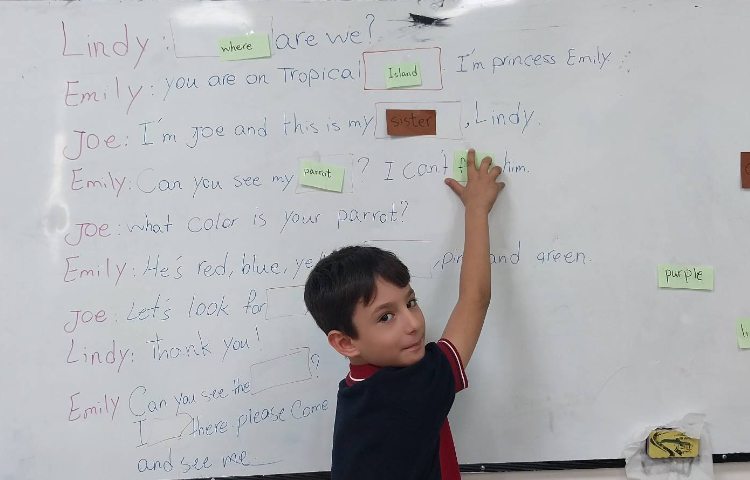 Lindy: where are we?
Emily: you are on Tropical Island I'm princess Emily.
Joe: I'm Joe and this is my sister, Lindy.
Emily: Can you see my parrot? I can't him.
Joe: what color is your parrot?
Emily: He's red, blue, and green.
purple
Joe: Let's look for
Lindy: thank you!
Emily Can you see the ?
I there please Come
and see me